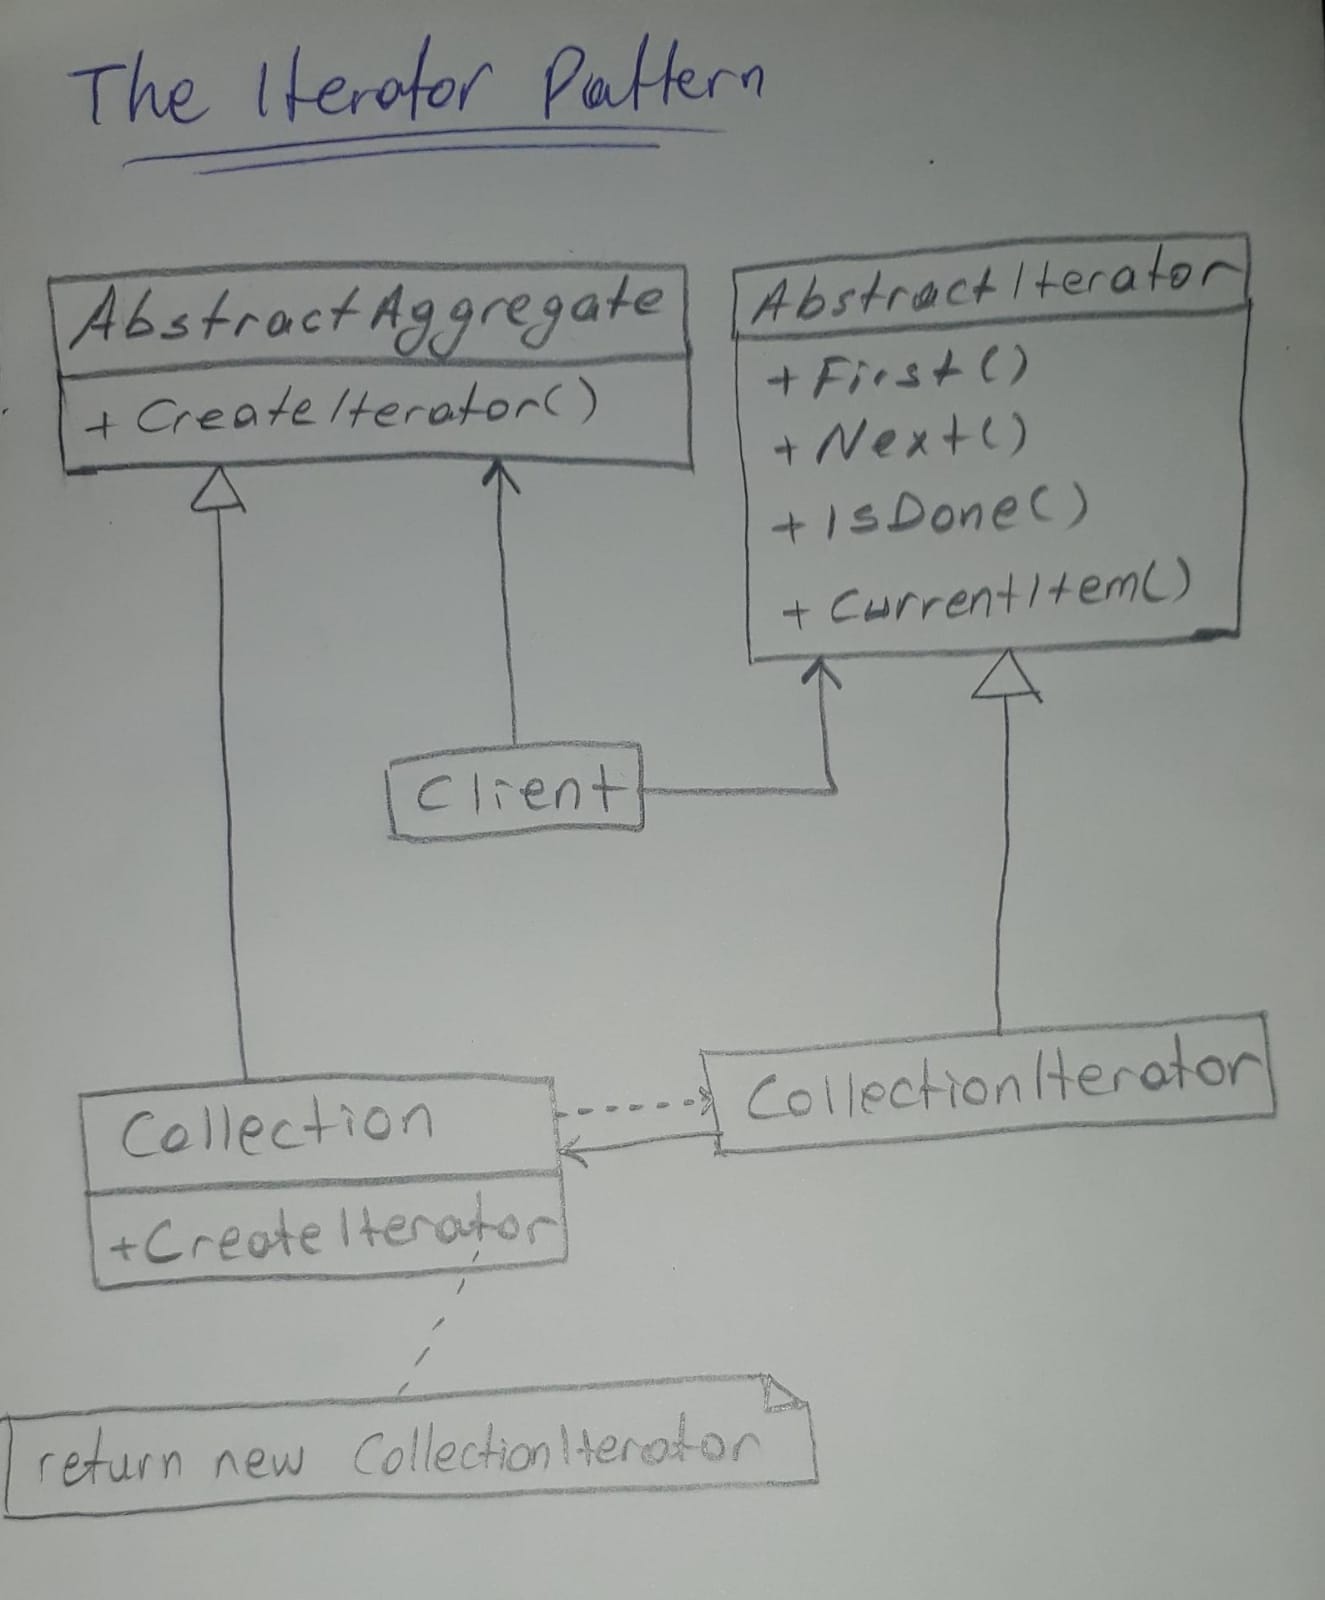 The Iterator Pattern
AbstractAggregate
+ CreateIterator()
AbstractIterator
+ First()
+ Next()
+ IsDone()
+ CurrentItem()
Client
Collection
+CreateIterator
CollectionIterator
return new CollectionIterator